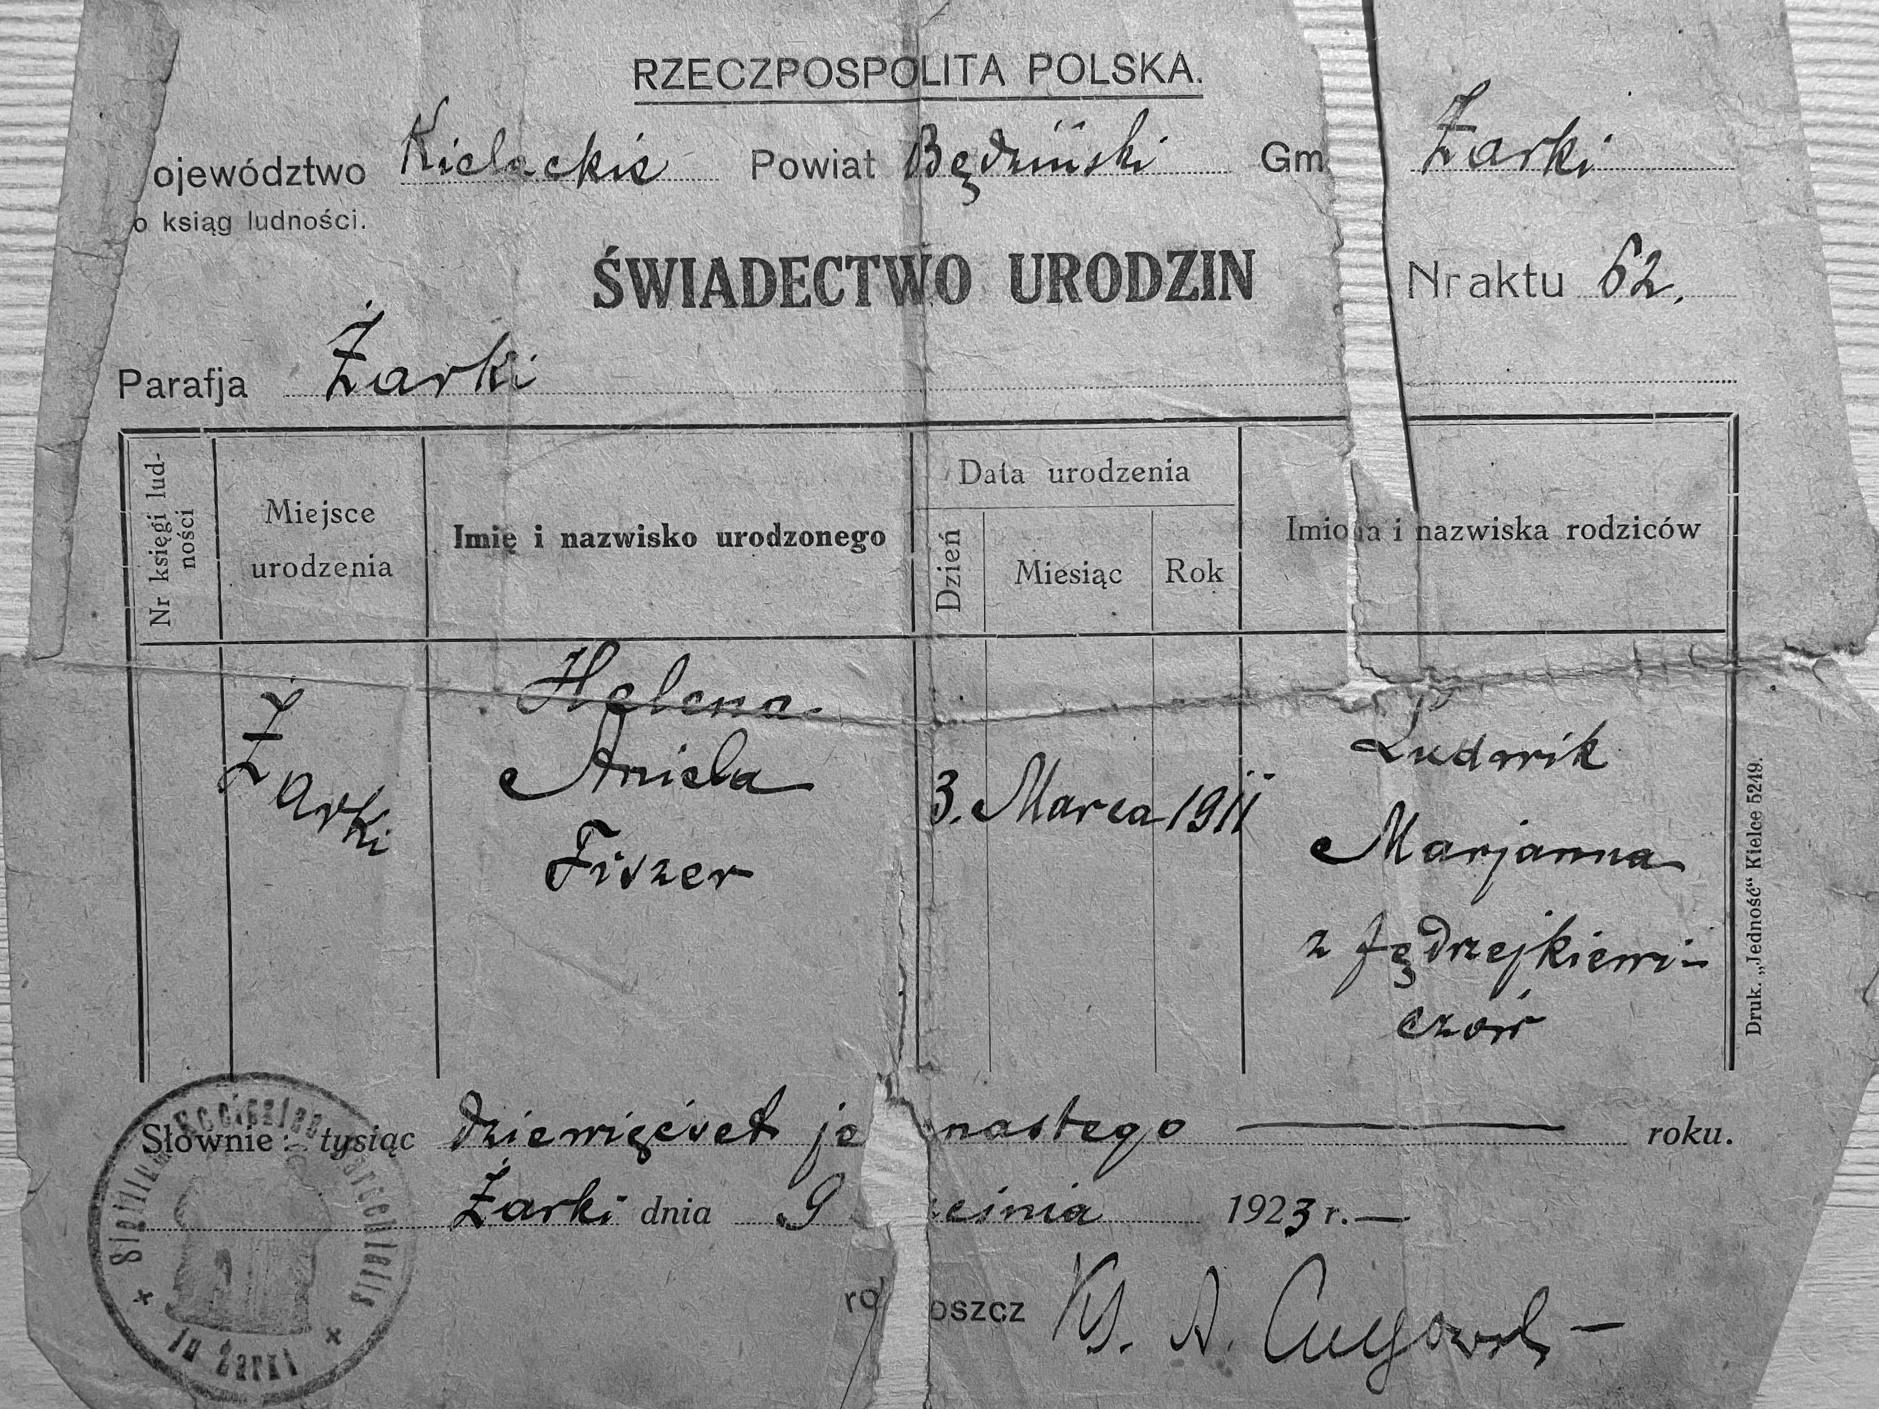 RZECZPOSPOLITA POLSKA.
ojewództwo Kieleckie Powiat Będziński Gm Żarki
o ksiąg ludności.
ŚWIADECTWO URODZIN
Nr aktu 62.
Parafja Żarki
Nr księgi lud-
ności
Miejsce
urodzenia
Imię i nazwisko urodzonego
Data urodzenia
Dzień
Miesiąc
Rok
Imiona i nazwiska rodziców
Żarki
Helena
Aniela
Fiszer
3. Marca 1911
Ludwik
Marjanna
z Jędrzejkiewi-
czów
Druk. „Jedność“ Kielce 5249.
Słownie: tysiąc dziewięćset je nastego roku.
Żarki dnia 9 eśnia 1923 r.—
ro oszcz Ks. A.
Sigillum Ecclesiae Parochialis
in Żarki